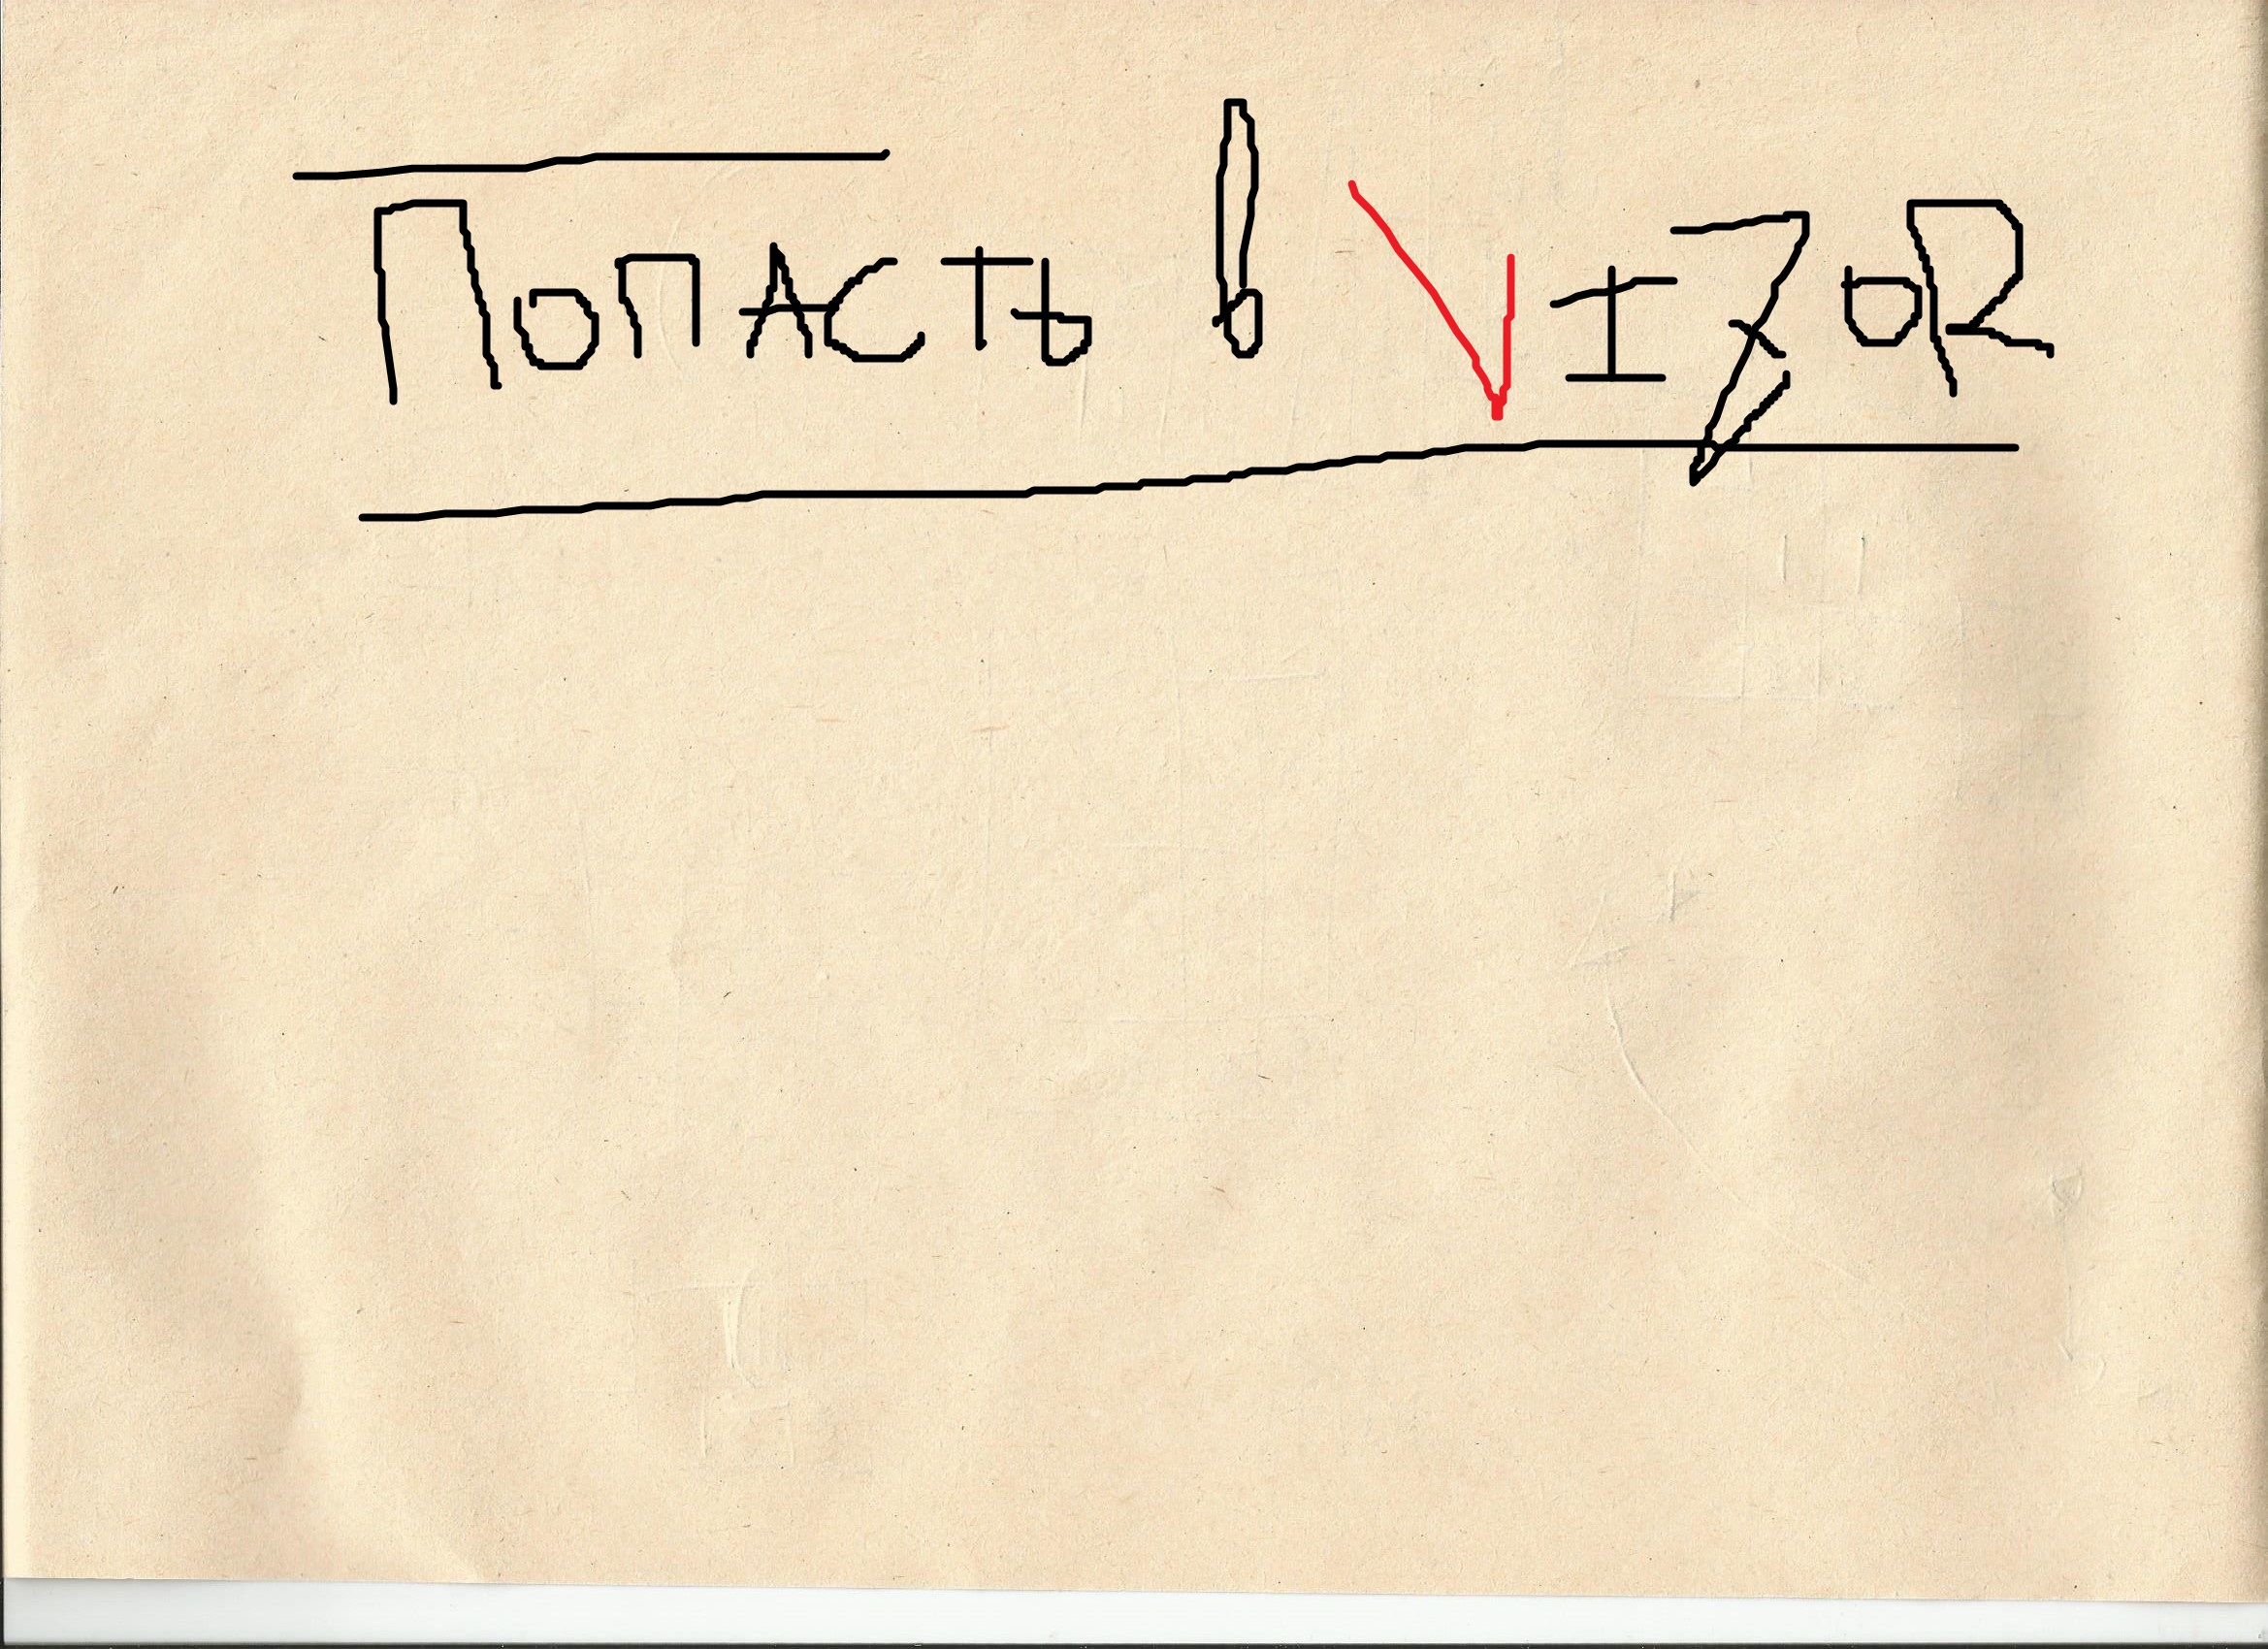 Попасть в VIZOR